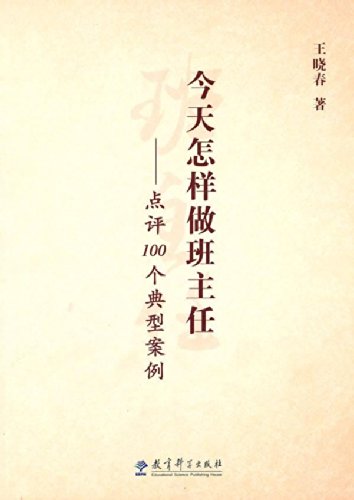 王晓春 著
今天怎样做班主任
——点评100个典型案例
班主任
教育科学出版社
Educational Science Publishing House